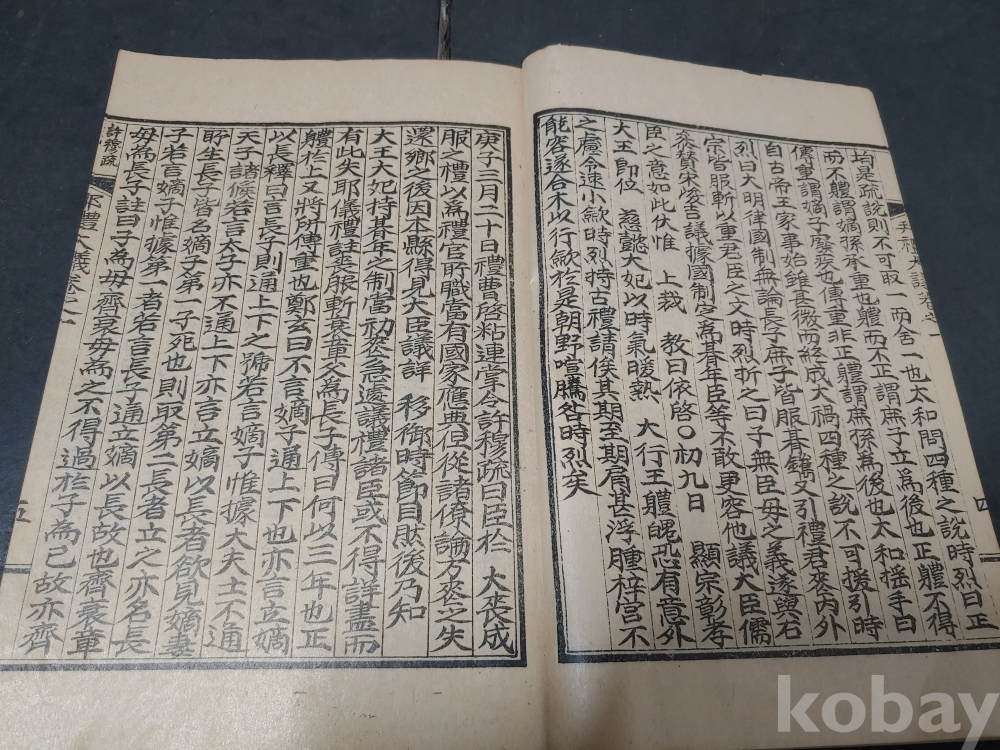 均是疏說則不可取一而舍一也太和問四種之說時烈曰正
而不軆謂嫡孫承重也軆而不正謂庶子立爲後也正軆不得
傳重謂嫡子廢疾也傳重非正軆謂庶孫爲後也太和搖手曰
自古帝王家事始雖甚微而終成大禍四種之說不可援引時
烈曰大明律國制無論長子庶子皆服朞鑴又引禮君喪內外
宗皆服斬以重君臣之文時烈折之曰子無臣母之義遂與右
參贊宋浚吉議據國制定爲朞年臣等不敢更容他議大臣儒
臣之意如此伏惟 上裁 敎曰依啓〇初九日 顯宗彰孝
大王卽位 慈懿大妃以時氣暖熱 大行王軆晼恐有意外
之慮令速小歛時烈持古禮請俟其期至期屑甚浮腫梓宮不
能容遂合木以行歛於是朝野喧騰咎時烈矣
四
庚子三月二十日禮曹啓粘連掌令許穆疏曰臣於 大喪成
服之禮以爲禮官所職當有國家應典但從諸僚論方喪之失
還鄕之後因本縣得見大臣議詳 移御時節目然後乃知
大王大妃持朞年之制當初喪急遽議禮諸臣或不得詳盡而
有此失耶儀禮註喪服斬衰章父爲長子傳曰何以三年也正
軆於上又將所傳重也鄭玄曰不言嫡子通上下也亦言立嫡
以長釋曰言長子則通上下之號若言嫡子惟據大夫士不通
天子諸候若言太子亦不通上下亦言立嫡以長者欲見嫡妻
所生長子皆名嫡子第一子死也則取第二長者立之亦名長
子若言嫡子惟據第一者若言長子通立嫡以長故也齊衰章
母爲長子註曰子爲母齊衰母爲之不得過於子爲己故亦齊
許穆疏
五